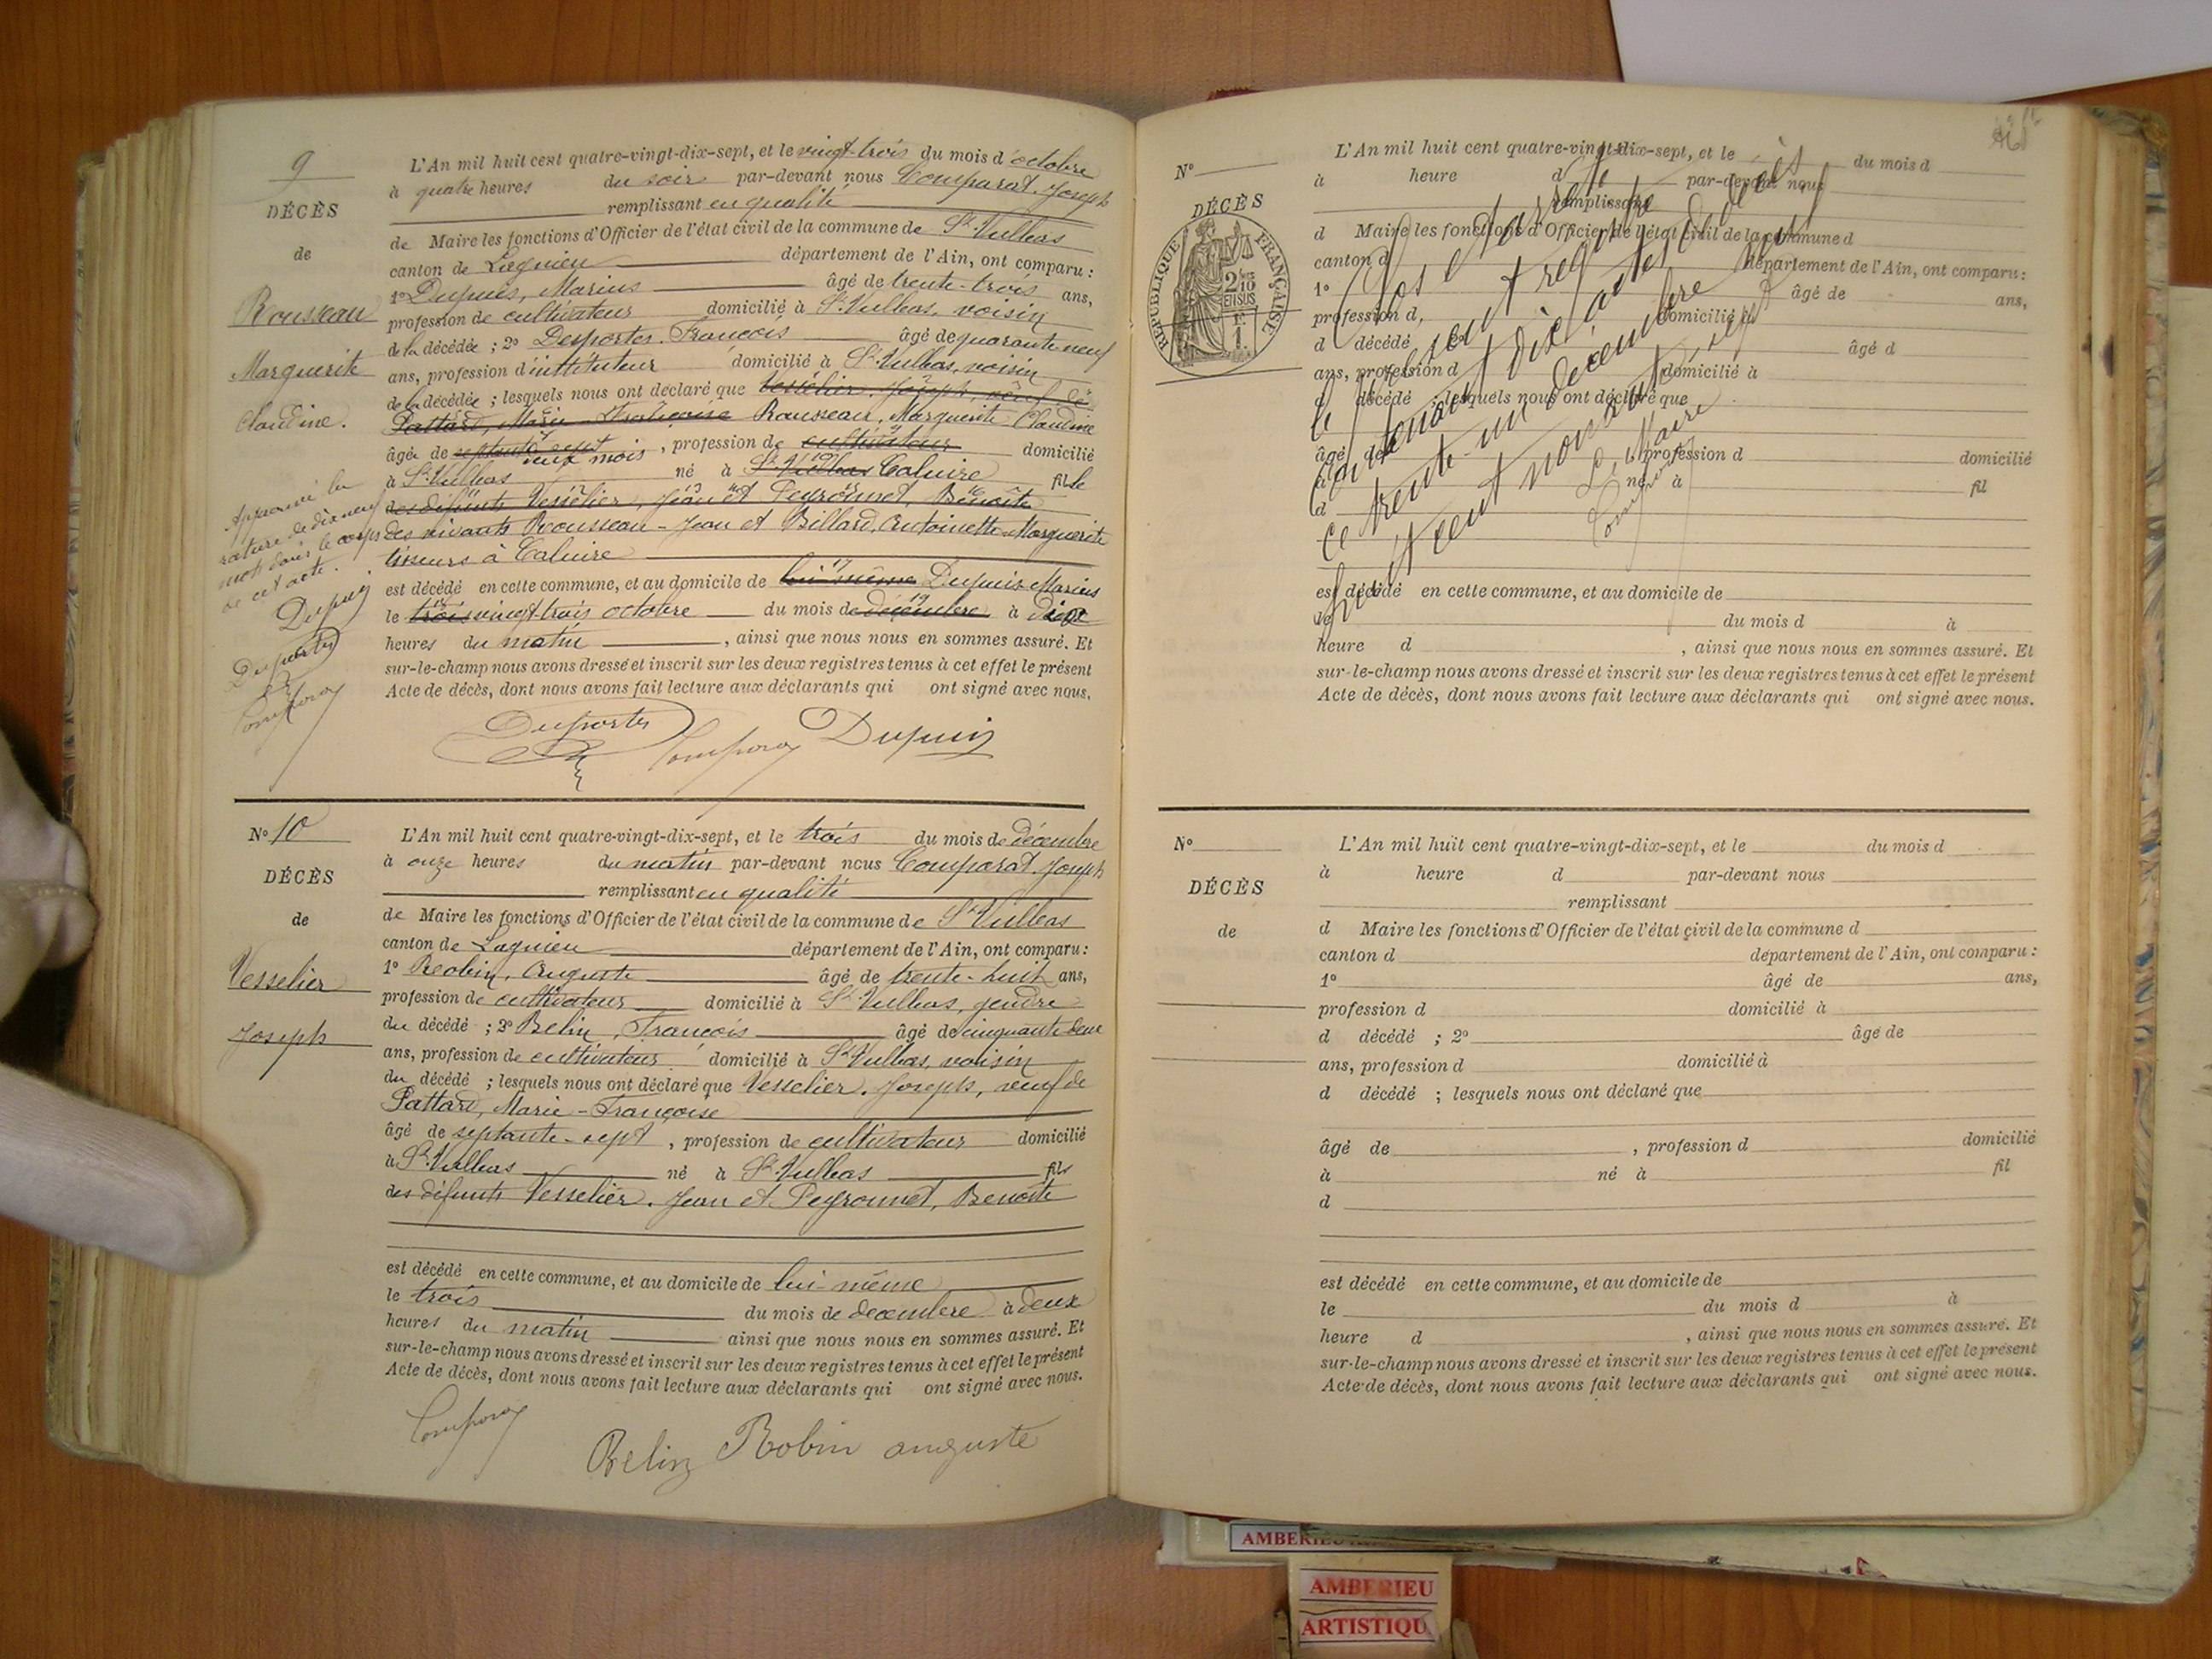 9
DÉCÈS
de
Rousseau
Marguerite
Claudine.
Approuvé la
rature de dix neuf
mots dans le corps
de cet acte.
Dupuis
Desportes
Comparat
L'An mil huit cent quatre-vingt-dix-sept, et le vingt-trois du mois d'octobre
à quatre heures du soir par-devant nous Comparat, Joseph
remplissant en qualité
de Maire les fonctions d'Officier de l'état civil de la commune de St Vulbas
canton de Lagnieu département de l'Ain, ont comparu :
1o Dupuis, Marius âgé de trente-trois ans,
profession de cultivateur domicilié à St Vulbas, voisin
de la décédée ; 2o Desportes, François âgé de quarante neuf
ans, profession d'instituteur domicilié à St Vulbas, voisin
de la décédée ; lesquels nous ont déclaré que Vesselier, Joseph, veuf de
Pattard, Marie-Françoise Rousseau, Marguerite Claudine
âgée de septante sept mois, profession de cultivateur domicilié
à St Vulbas né à St Vulbas Caluire fille
des défunts Vesselier, Jean et Peyronnet, Benoite
des vivants Rousseau-Jean et Billard, Antoinette-Marguerite
tisseurs à Caluire
est décédé en cette commune, et au domicile de lui-même Dupuis Marius
le trois vingt-trois octobre du mois de décembre à deux
heures du matin, ainsi que nous nous en sommes assuré. Et
sur-le-champ nous avons dressé et inscrit sur les deux registres tenus à cet effet le présent
Acte de décès, dont nous avons fait lecture aux déclarants qui ont signé avec nous.
Desportes Comparat Dupuis
No 10
DÉCÈS
de
Vesselier
Joseph
L'An mil huit cent quatre-vingt-dix-sept, et le trois du mois de décembre
à onze heures du matin par-devant nous Comparat, Joseph
remplissant en qualité
de Maire les fonctions d'Officier de l'état civil de la commune de St Vulbas
canton de Lagnieu département de l'Ain, ont comparu :
1o Robin, Auguste âgé de trente-huit ans,
profession de cultivateur domicilié à St Vulbas, gendre
du décédé ; 2o Belin, François âgé de cinquante deux
ans, profession de cultivateur domicilié à St Vulbas, voisin
du décédé ; lesquels nous ont déclaré que Vesselier, Joseph, veuf de
Pattard, Marie-Françoise
âgé de septante-sept, profession de cultivateur domicilié
à St Vulbas né à St Vulbas fils
des défunts Vesselier, Jean et Peyronnet, Benoite
est décédé en cette commune, et au domicile de lui-même
le trois du mois de décembre à deux
heures du matin ainsi que nous nous en sommes assuré. Et
sur-le-champ nous avons dressé et inscrit sur les deux registres tenus à cet effet le présent
Acte de décès, dont nous avons fait lecture aux déclarants qui ont signé avec nous.
Comparat
Belin Robin auguste
No
DÉCÈS
RÉPUBLIQUE FRANÇAISE
2 fcs
10
EN SUS
E.
1.
L'An mil huit cent quatre-vingt-dix-sept, et le du mois d
à heure d par-devant nous
remplissant
d Maire les fonctions d'Officier de l'état civil de la commune d
canton d département de l'Ain, ont comparu :
1o âgé de ans,
profession d domicilié à
d décédé âgé d
ans, profession d domicilié à
d décédé ; lesquels nous ont déclaré que
âgé de , profession d domicilié
à né à fil
d
est décédé en cette commune, et au domicile de
le du mois d à
heure d , ainsi que nous nous en sommes assuré. Et
sur-le-champ nous avons dressé et inscrit sur les deux registres tenus à cet effet le présent
Acte de décès, dont nous avons fait lecture aux déclarants qui ont signé avec nous.
Clos et arrêté
le présent registre
contenant dix actes de décès
ce trente-un décembre
huit cent nonante sept
Le Maire
Comparat
No
DÉCÈS
de
L'An mil huit cent quatre-vingt-dix-sept, et le du mois d
à heure d par-devant nous
remplissant
d Maire les fonctions d'Officier de l'état civil de la commune d
canton d département de l'Ain, ont comparu :
1o âgé de ans,
profession d domicilié à
d décédé ; 2o âgé de
ans, profession d domicilié à
d décédé ; lesquels nous ont déclaré que
âgé de , profession d domicilié
à né à fil
d
est décédé en cette commune, et au domicile de
le du mois d à
heure d , ainsi que nous nous en sommes assuré. Et
sur-le-champ nous avons dressé et inscrit sur les deux registres tenus à cet effet le présent
Acte de décès, dont nous avons fait lecture aux déclarants qui ont signé avec nous.
AMBERIEU
AMBERIEU
ARTISTIQU